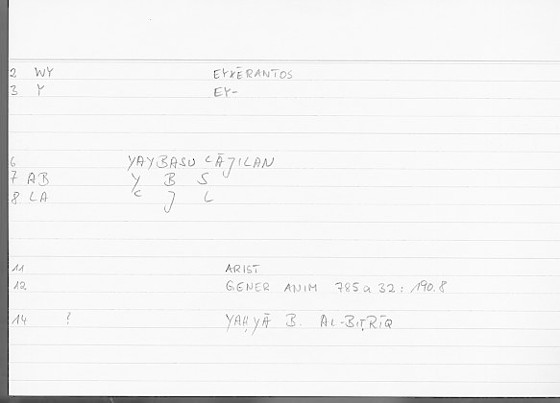 2 WY EYXĒRANTOS
3 Y EY-
6 YAYBASU ʿĀJILAN
7 AB Y B S
8 LA ʿ J L
11 ARIST
12 GENER ANIM 785a32 : 190.8
14 ! YAḤYĀ B. AL-BIṬRĪQ